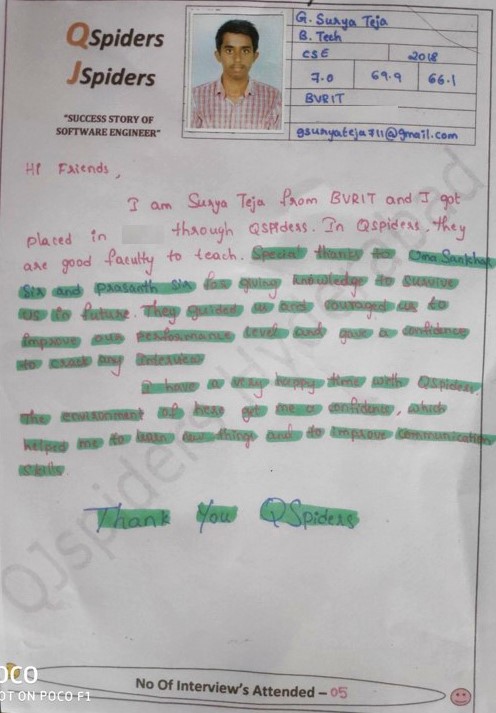 QSpiders
JSpiders
"SUCCESS STORY OF
SOFTWARE ENGINEER"
G. Surya Teja
B. Tech
CSE 2018
7.0 69.9 66.1
BVRIT
gsuryateja711@gmail.com
Hi Friends,
I am Surya Teja from BVRIT and I got
placed in through QSpiders. In QSpiders, they
are good faculty to teach. Special thanks to Oma Sankhar
Sir and prasanth sir for giving knowledge to survive
us in future. They guided us and couraged us to
improve our performance level and gave a confidence
to crack any interview
I have a very happy time with QSpiders.
The environment of here get me a confidence, which
helped me to learn new things and to improve communication
skills
Thank You QSpiders
QJspiders Hyderabad
No Of Interview's Attended – 05
OCO
OT ON POCO F1